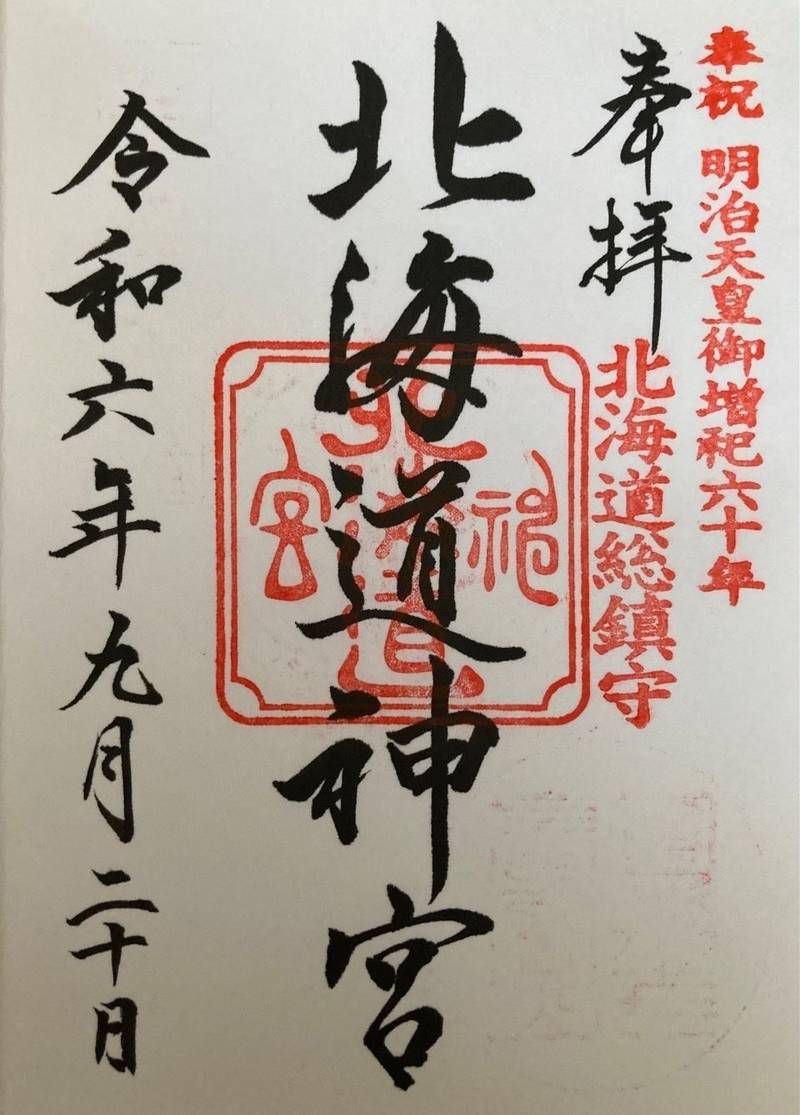 奉祝 明治天皇御増祀六十年
奉拝
北海道総鎮守
北海道神宮
北海道神宮
令和六年九月二十日